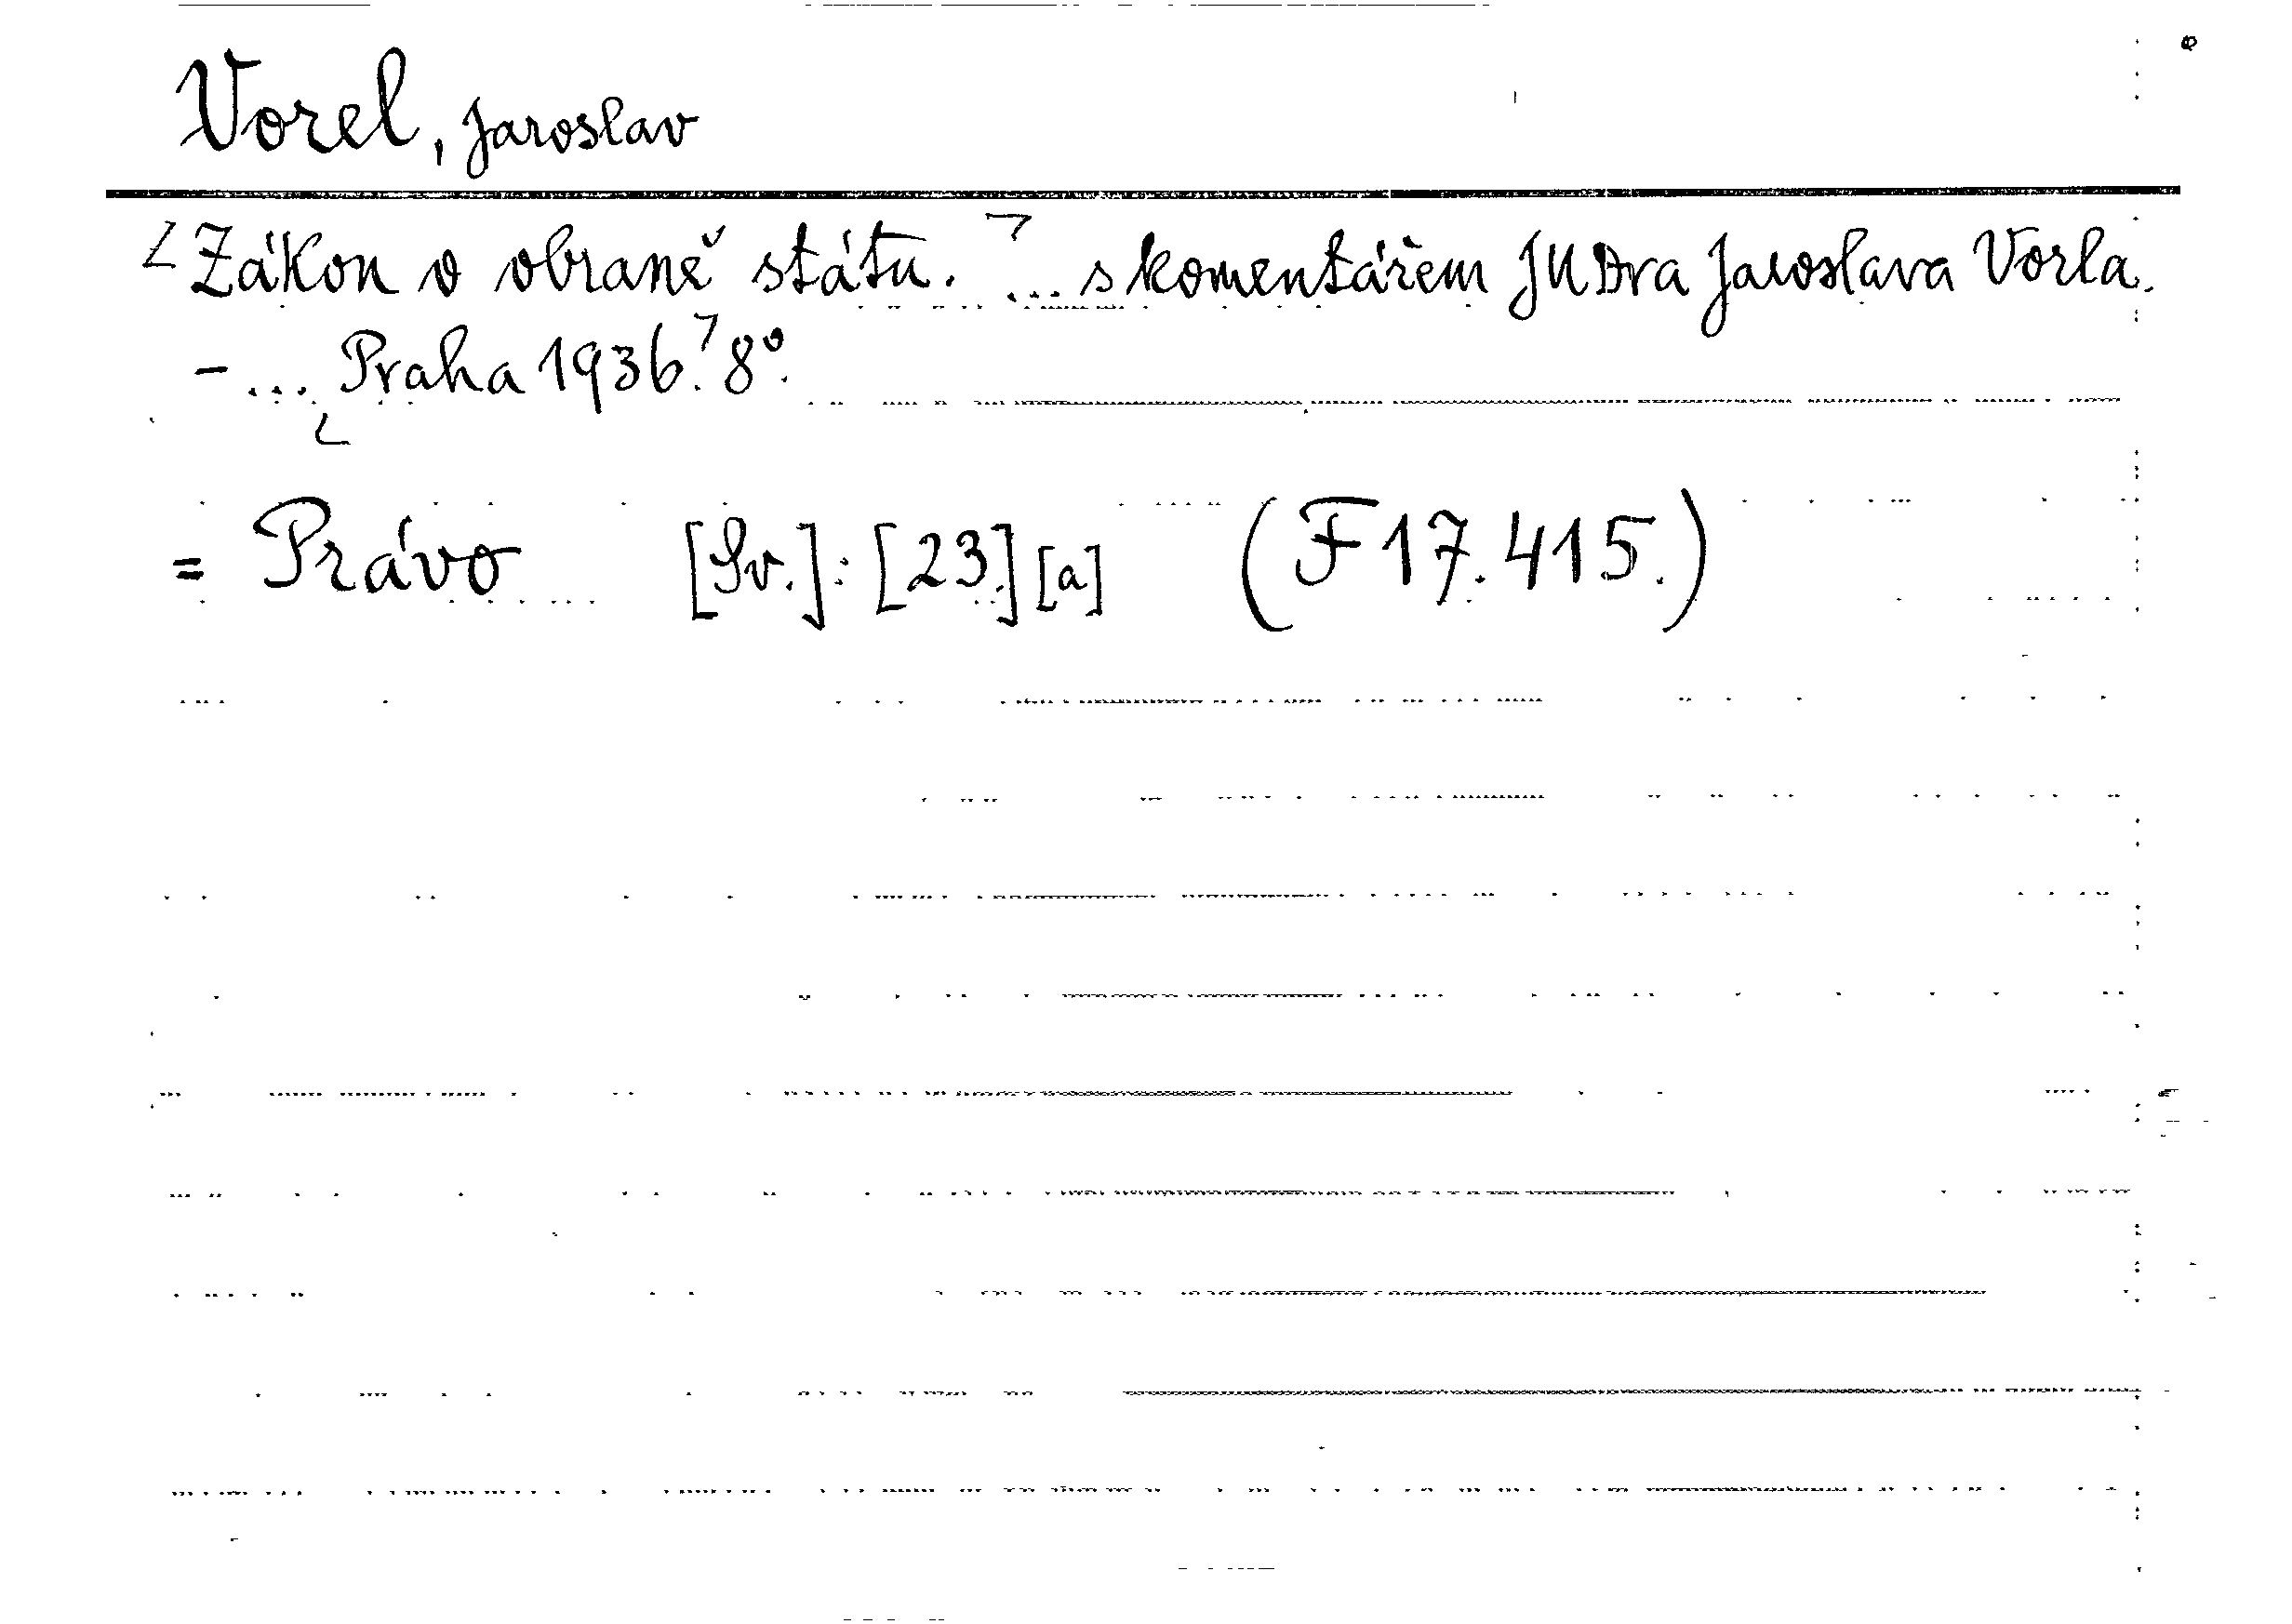 Vorel, Jaroslav
Zákon o obraně státu. ... s komentářem JUDra Jaroslava Vorla.
- ... Praha 1936. 8°.
= Právo [Sv.]: [23.] [a] (F 17.415.)